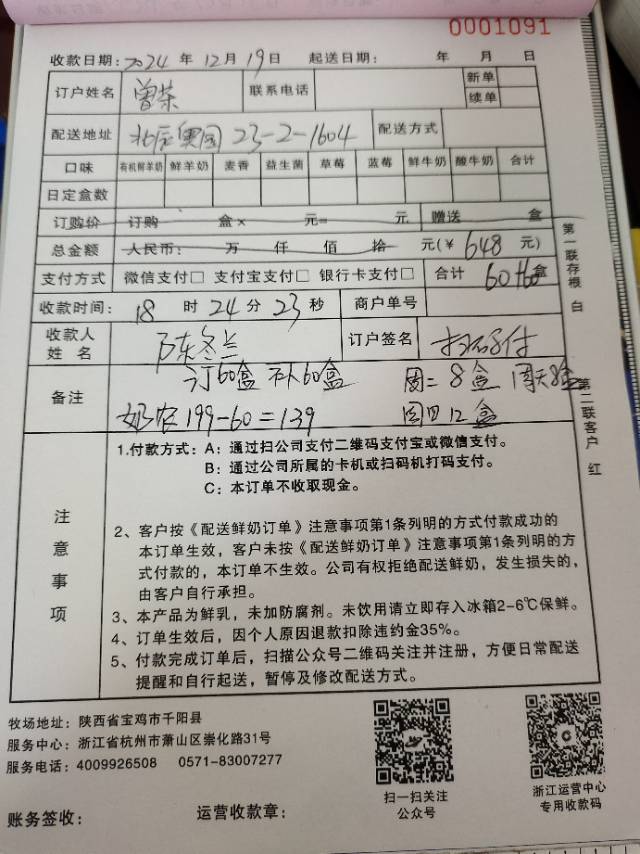 0001091
收款日期：2024 年 12月 19日 起送日期： 年 月 日
订户姓名 曾荣 联系电话 新单
续单
配送地址 北辰奥园 23-2-1604 配送方式
口味 有机鲜羊奶 鲜羊奶 麦香 益生菌 草莓 蓝莓 鲜牛奶 酸牛奶 合计
日定盒数
订购价 订购 盒× 元= 元 赠送 盒
总金额 人民币： 万 仟 佰 拾 元(￥ 648 元)
支付方式 微信支付□ 支付宝支付□ 银行卡支付□ 合计 盒
收款时间： 18 时 24 分 23 秒 商户单号
收款人姓名 陈冬兰 订户签名 扫码付
备注 订60盒 补60盒 周二 8盒 周天8盒
奶农 199-60=139 周四 12盒
第一联存根 白
第二联客户 红
注意事项
1.付款方式：A：通过扫公司支付二维码支付宝或微信支付。
B：通过公司所属的卡机或扫码机打码支付。
C：本订单不收取现金。
2、客户按《配送鲜奶订单》注意事项第1条列明的方式付款成功的
本订单生效，客户未按《配送鲜奶订单》注意事项第1条列明的方
式付款的，本订单不生效。公司有权拒绝配送鲜奶，发生损失的，
由客户自行承担。
3、本产品为鲜乳，未加防腐剂。未饮用请立即存入冰箱2-6℃保鲜。
4、订单生效后，因个人原因退款扣除违约金35%。
5、付款完成订单后，扫描公众号二维码关注并注册，方便日常配送
提醒和自行起送，暂停及修改配送方式。
牧场地址：陕西省宝鸡市千阳县
服务中心：浙江省杭州市萧山区崇化路31号
服务电话：4009926508 0571-83007277
扫一扫关注
公众号
浙江运营中心
专用收款码
账务签收： 运营收款章：